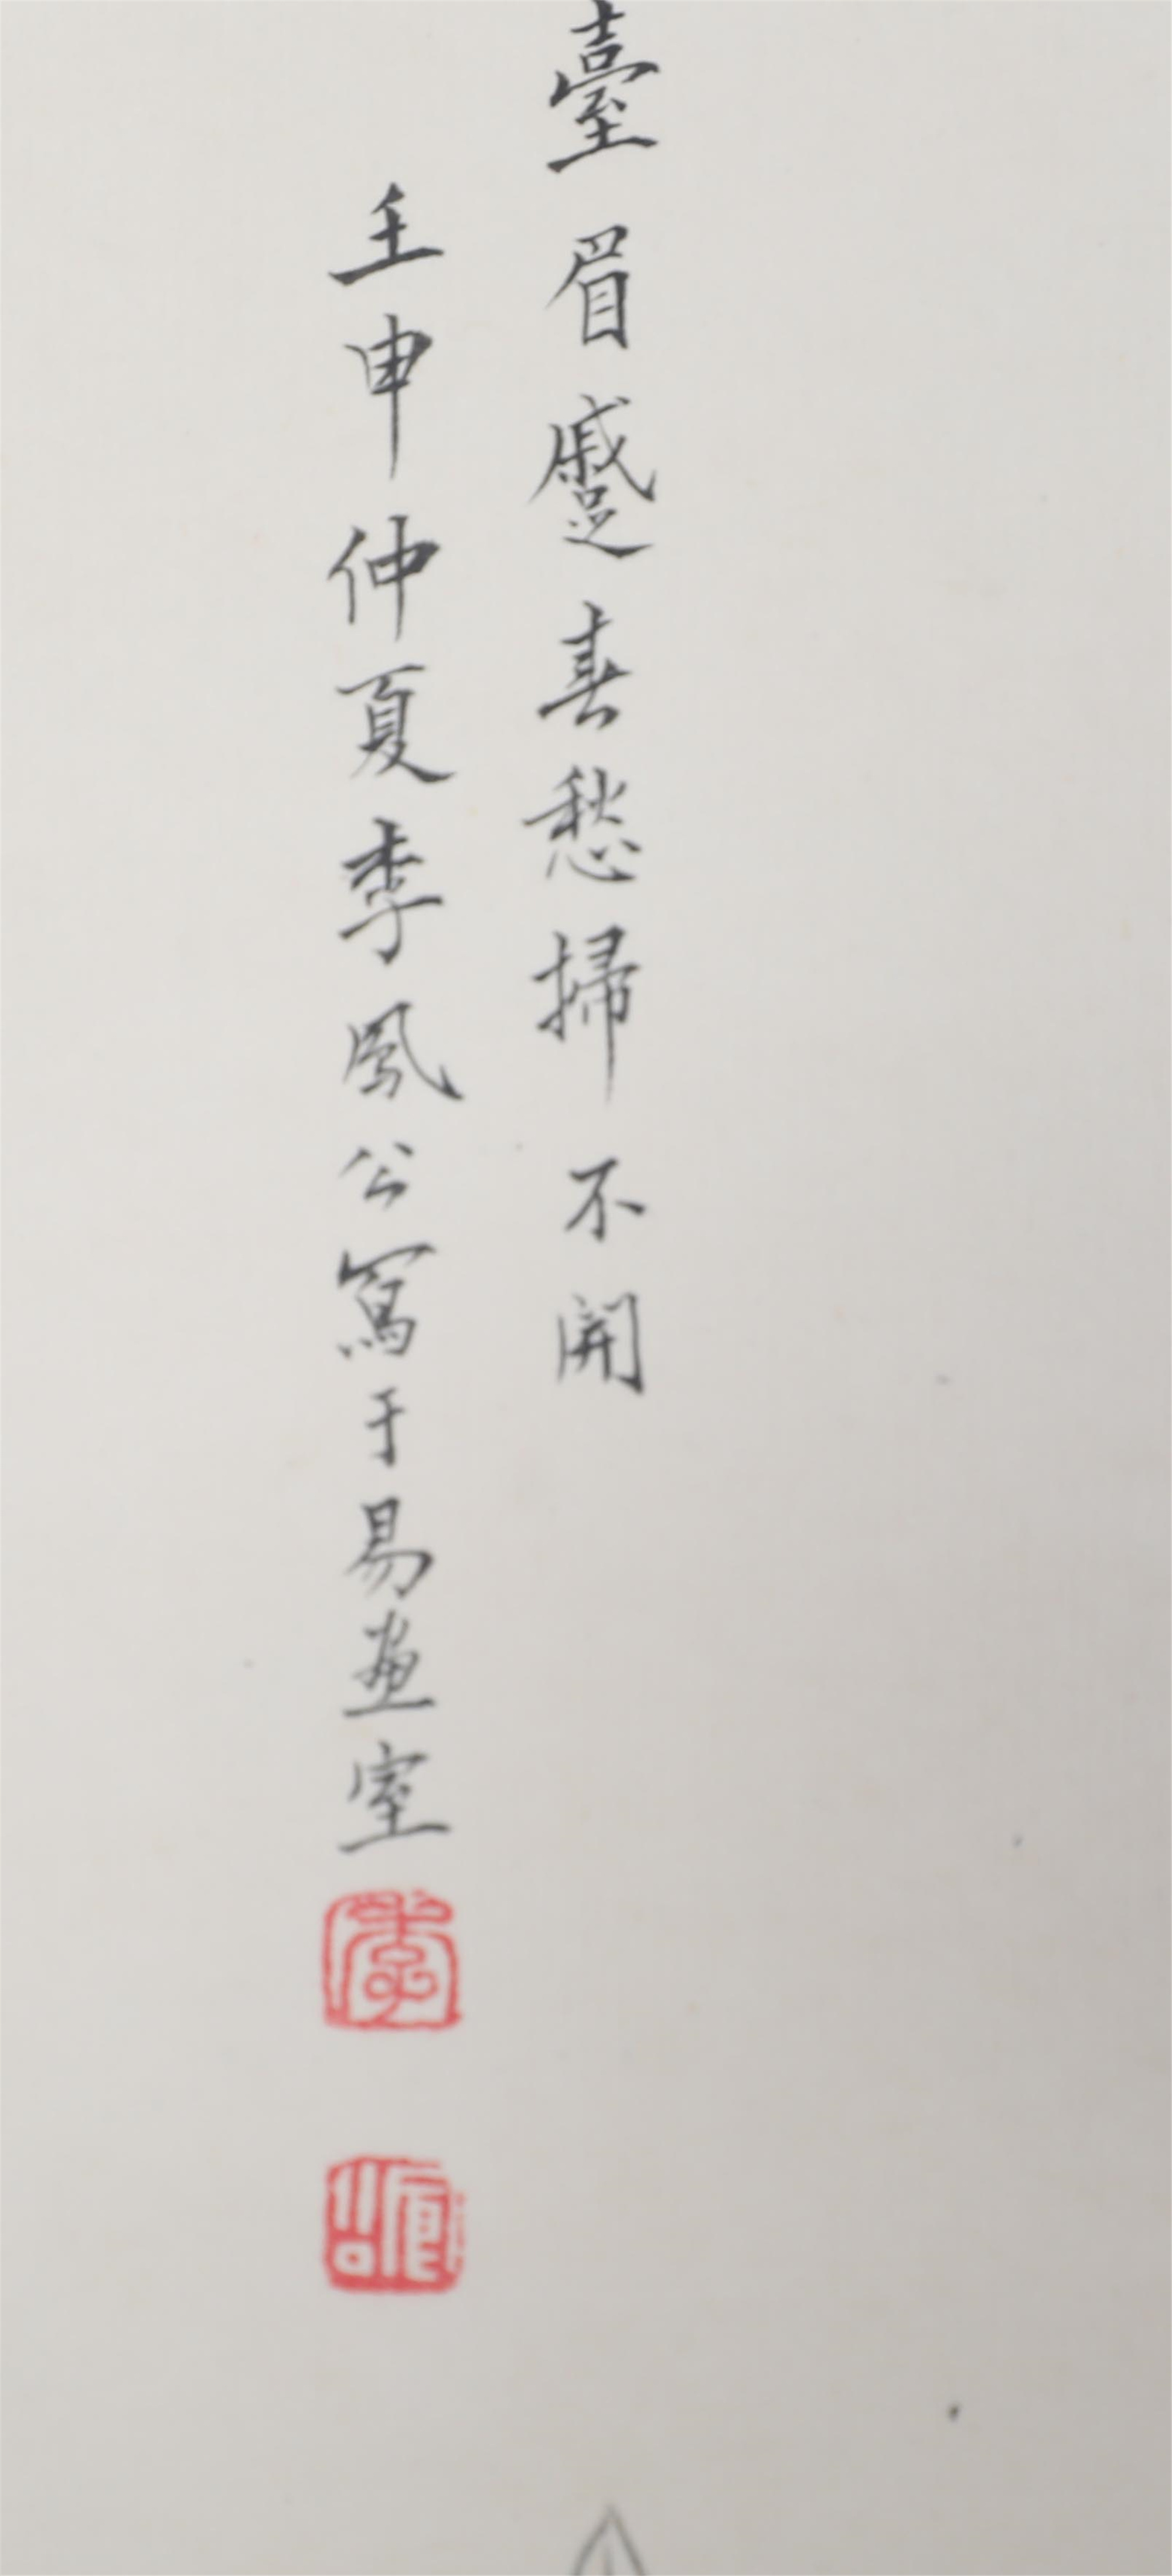 臺眉蹙春愁掃不開
壬申仲夏季鳳公寫于易畫室
李